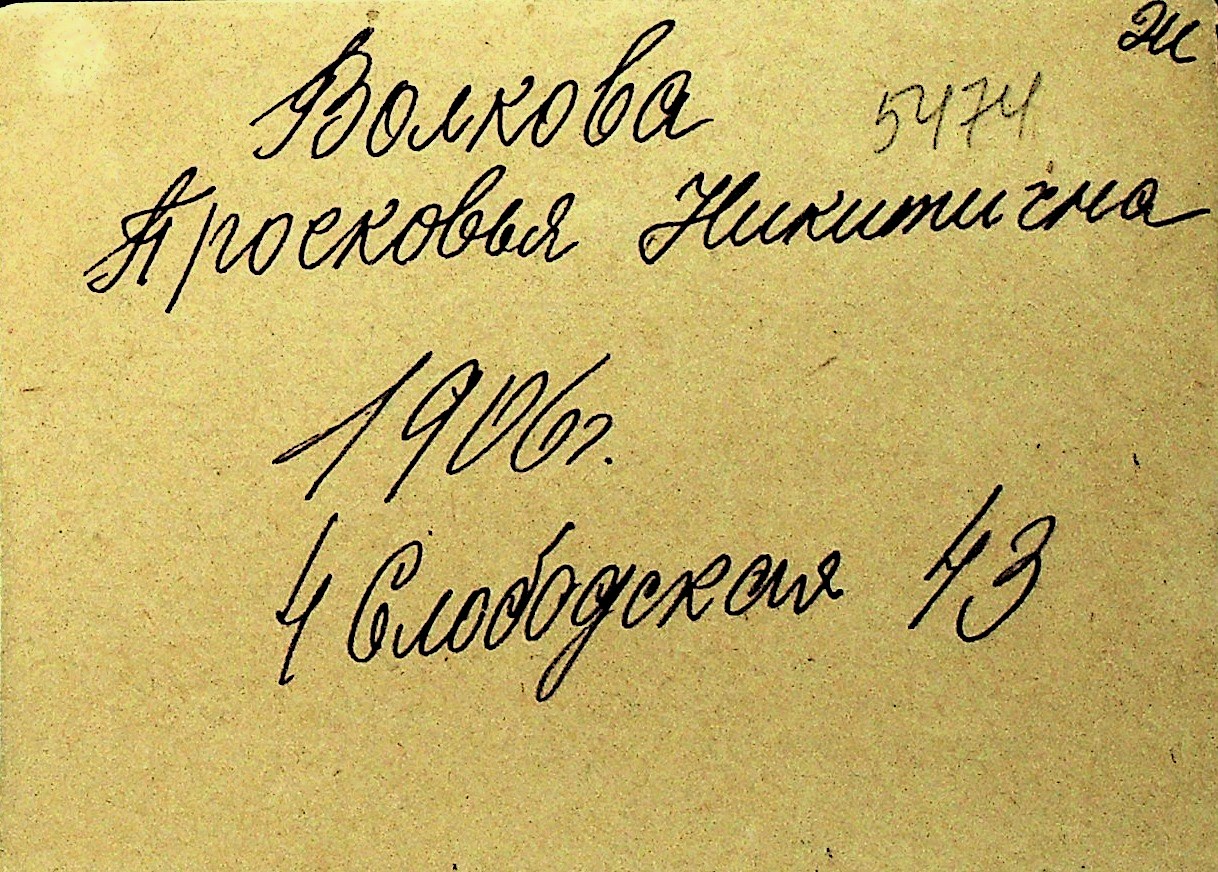 Ж
Волкова 5474
Просковья Никитична
1906г.
4 Слободская 43